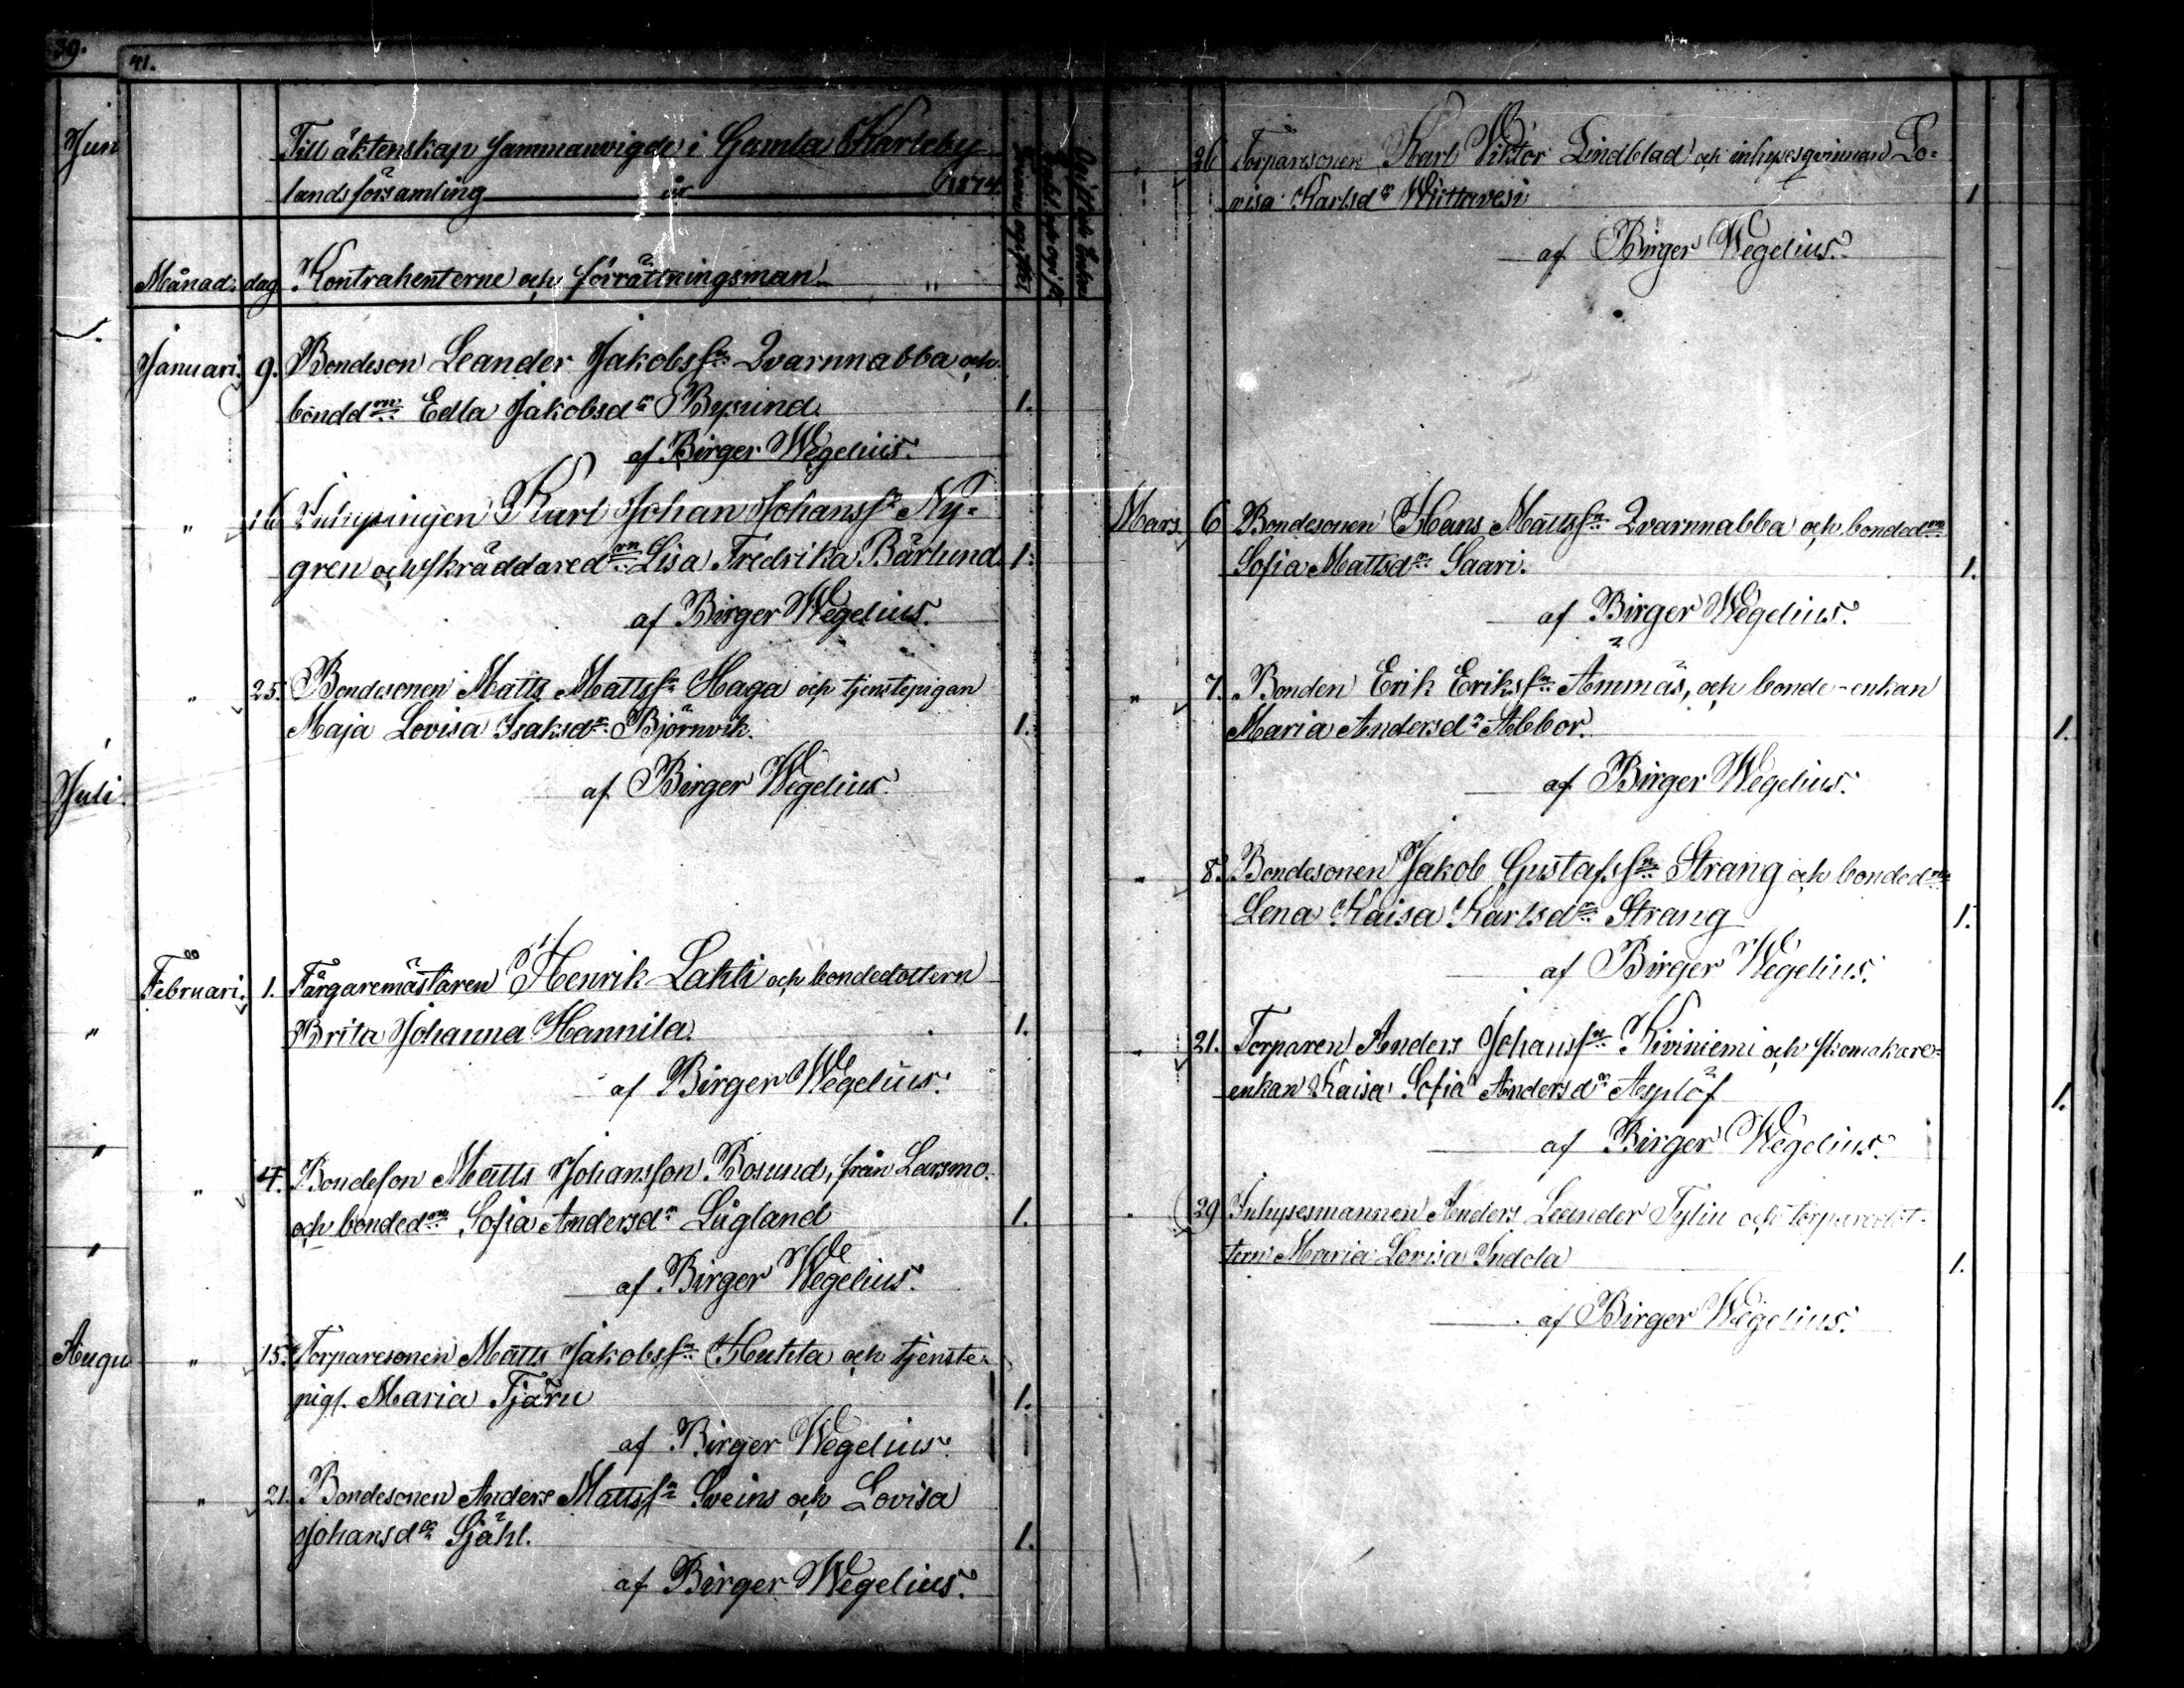 39.
41.
Jun
Juli
Augu
Till äktenskap sammanvigde i Gamla Karleby
landsförsamling år 1874
Månad. dag Kontrahenterne och förrättningsman
Januari. 9. Bondeson Leander Jakobsſn Qvarnnabba och
bonddrn Edla Jakobsdr Bysund. 1.
af Birger Wegelius.
" 16 Inhysingen Karl Johan Johansſn Ny-
gren och skräddaredrn Lisa Fredrika Bärlund 1.
af Birger Wegelius.
" 25. Bondesonen Matts Mattsſn Haga och tjenstepigan
Maja Lovisa Isaksdr Björnvik. 1.
af Birger Wegelius.
Februari. 1. Färgaremästaren Henrik Lahti och bondedottern
Brita Johanna Hannila. 1.
af Birger Wegelius.
" 4. Bondeson Matts Johansson Bosund, från Larsmo.
och bondedrn Sofia Andersdr Lågland 1.
af Birger Wegelius.
" 15. Torparesonen Matts Jakobsſn Huhta och tjenste-
pig. Maria Tjäru 1.
af Birger Wegelius.
" 21. Bondesonen Anders Mattsſn Sveins och Lovisa
Johansdr Sjähl. 1.
af Birger Wegelius.
" 26 Torparesonen Karl Viktor Lindblad och inhysesqvinnan Lo-
visa Karlsdr Wiittavesi 1
af Birger Wegelius.
Mars 6 Bondesonen Hans Mattsſn Qvarnnabba och bondedrn
Sofia Mattsdr Saari. 1.
af Birger Wegelius.
" 7. Bonden Erik Eriksſn Ammäs, och bonde-enkan
Maria Andersdr Abbor. 1.
af Birger Wegelius.
" 8. Bondesonen Jakob Gustafsſn Strang och bondedrn
Lena Kaisa Karlsdr Strang 1.
af Birger Wegelius.
" 21. Torparen Anders Johansſn Kiviniemi och skomakare-
enkan Kaisa Sofia Andersdr Asplöf 1.
af Birger Wegelius.
" 29 Inhysesmannen Anders Leander Tylin och torparedot-
tern Maria Lovisa Indola 1.
af Birger Wegelius.